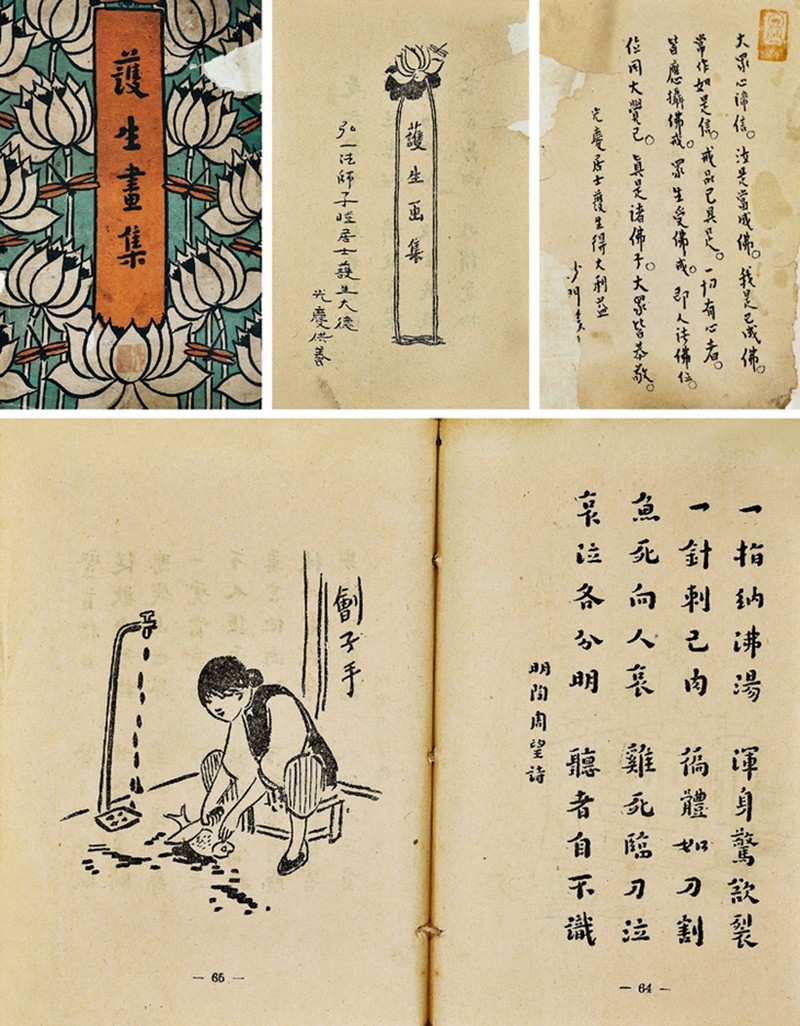 護生畫集
護生画集
弘一法師子愷居士護生大德
光慶供養
大眾心諦信。汝是當成佛。我是已成佛。
常作如是信。戒品已具足。一切有心者。
皆應攝佛戒。眾生受佛戒。即入諸佛位。
位同大覺已。真是諸佛子。大眾皆恭敬。
光慶居士護生得大利益
沙門
一指納沸湯 渾身驚欲裂
一針刺己肉 徧體如刀割
魚死向人哀 雞死臨刀泣
哀泣各分明 聽者自不識
明陶周望詩
— 64 —
劊子手
— 65 —